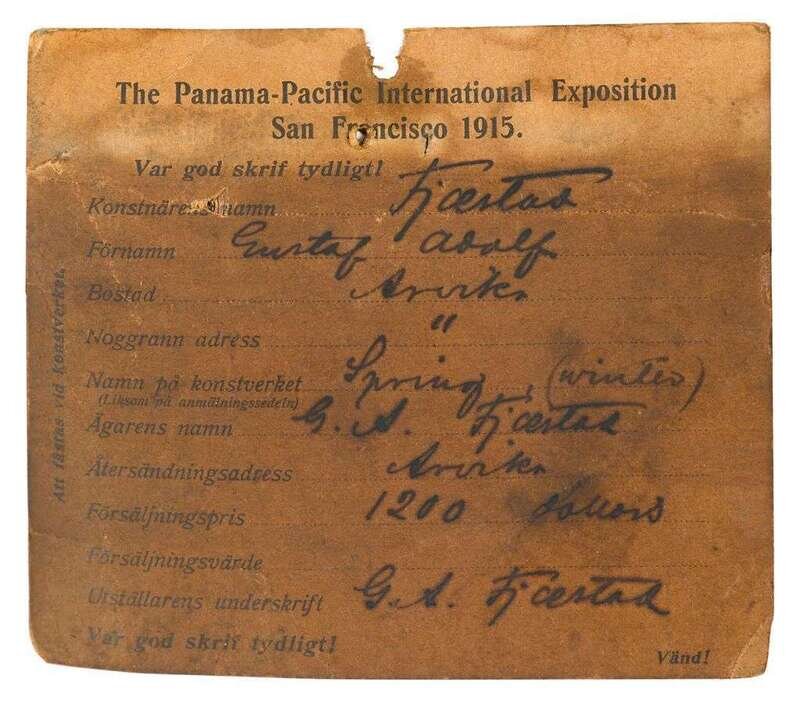 The Panama-Pacific International Exposition
San Francisco 1915.
Var god skrif tydligt!
Konstnärens namn Fjæstad
Förnamn Gustaf Adolf
Bostad Arvika
Noggrann adress "
Namn på konstverket Spring, (winter)
(Liksom på anmälningssedeln)
Ägarens namn G. A. Fjæstad
Återsändningsadress Arvika
Försäljningspris 1200 dollars
Försäljningsvärde
Utställarens underskrift G. A. Fjæstad
Var god skrif tydligt!
Vänd!
Att fästas vid konstverket.